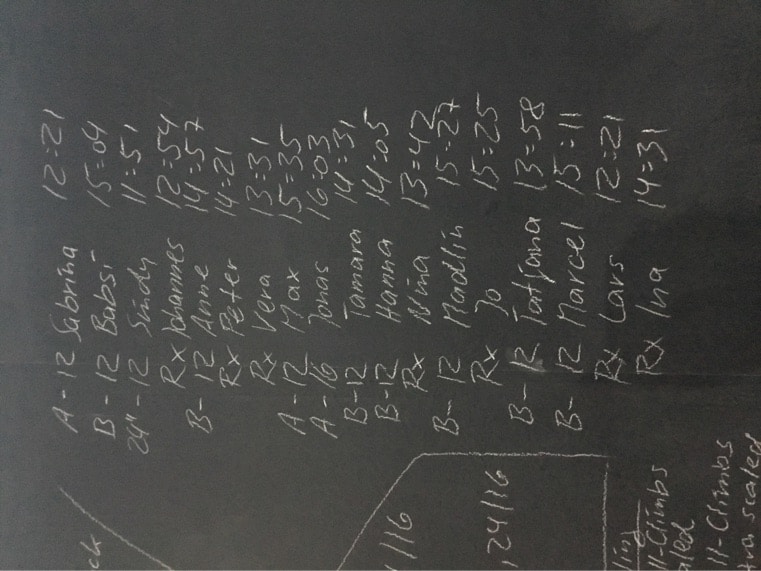 A - 12 Sabrina 12:21
B - 12 Babsi 15:04
24" - 12 Sindy 11:51
Rx Johannes 12:54
B - 12 Anne 14:57
Rx Peter 14:21
Rx Vera 13:31
A - 12 Max 15:35
A - 16 Jonas 16:03
B - 12 Tamara 14:31
B - 12 Hanna 14:05
Rx Nina 13:42
B - 12 Madlin 15:27
Rx Jo 15:25
B - 12 Tatjana 13:58
B - 12 Marcel 15:11
Rx Lars 12:21
Rx Ina 14:31
ck
/16
24/16
ling
ll-Climbs
aled
ll-Climbs
tra scaled